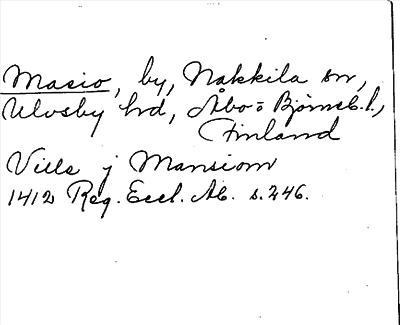 Masio, by, Nakkila sn,
Ulvsby hd, Åbo = Björneb. l.,
Finland
Villa j Mansiom
1412 Reg. Eccl. Ab. s. 246.